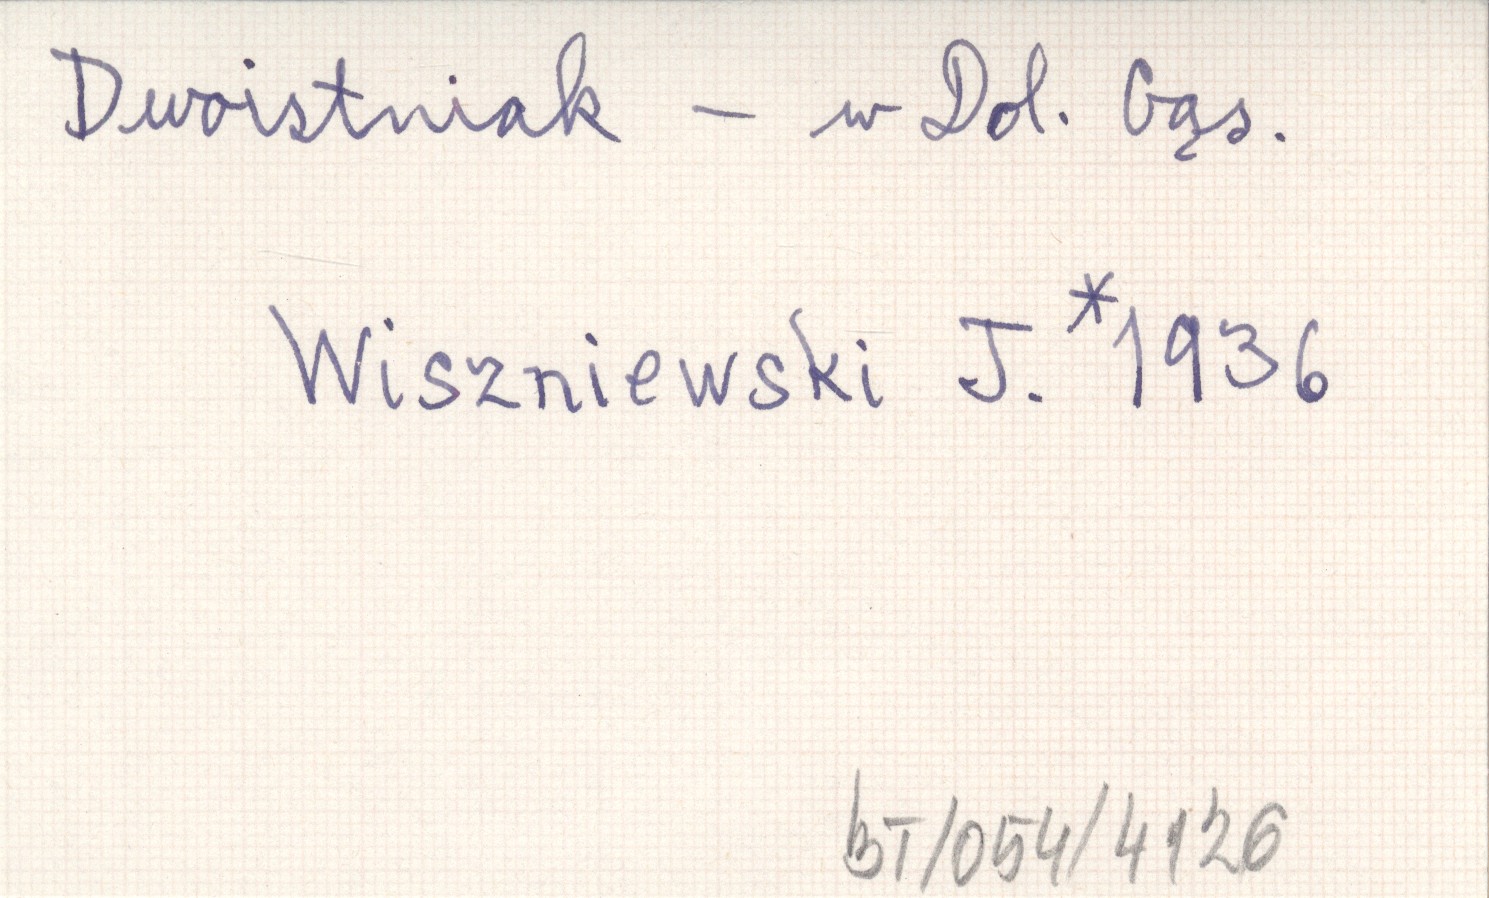 Dwoistniak – w Dol. Gąs.
Wiszniewski J.* 1936
BT/054/4126